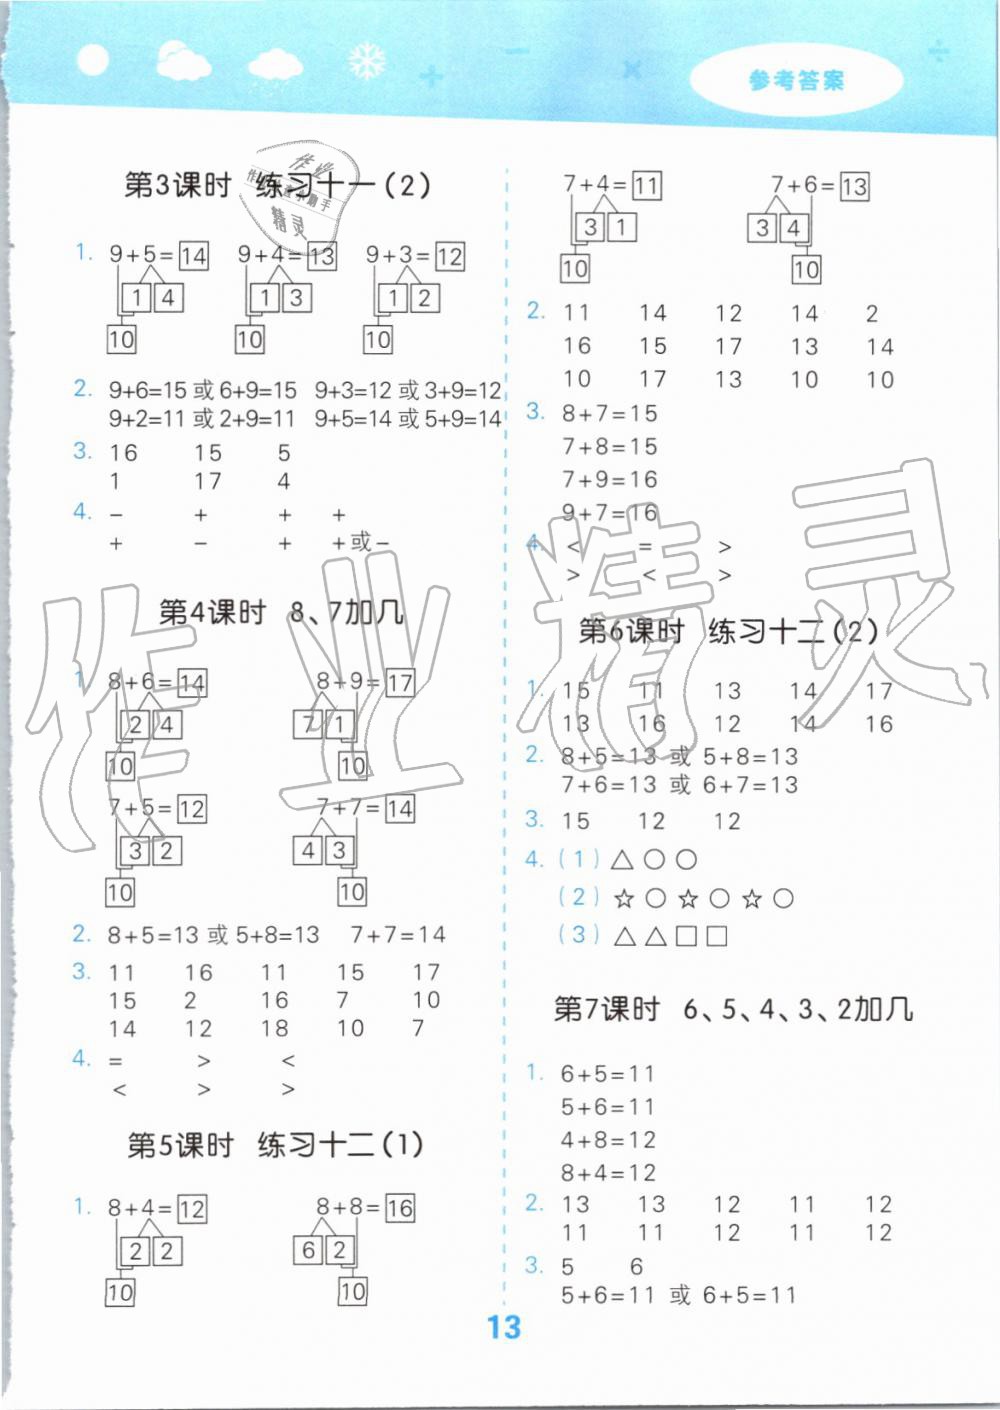 参考答案
第3课时 练习十一(2)
1. 9+5=14 9+4=13 9+3=12
1 4 1 3 1 2
10 10 10
2. 9+6=15 或 6+9=15 9+3=12 或 3+9=12
9+2=11 或 2+9=11 9+5=14 或 5+9=14
3. 16 15 5
1 17 4
4. − + + +
+ − + +或−
第4课时 8、7加几
1 8+6=14 8+9=17
2 4 7 1
10 10
7+5=12 7+7=14
3 2 4 3
10 10
2. 8+5=13 或 5+8=13 7+7=14
3. 11 16 11 15 17
15 2 16 7 10
14 12 18 10 7
4. = > <
< > >
第5课时 练习十二(1)
1. 8+4=12 8+8=16
2 2 6 2
10 10
7+4=11 7+6=13
3 1 3 4
10 10
2. 11 14 12 14 2
16 15 17 13 14
10 17 13 10 10
3. 8+7=15
7+8=15
7+9=16
9+7=16
4. < = >
> < >
第6课时 练习十二(2)
1. 15 11 13 14 17
13 16 12 14 16
2. 8+5=13 或 5+8=13
7+6=13 或 6+7=13
3. 15 12 12
4. (1) △ ○ ○
(2) ☆ ○ ☆ ○ ☆ ○
(3) △ △ □ □
第7课时 6、5、4、3、2加几
1. 6+5=11
5+6=11
4+8=12
8+4=12
2. 13 13 12 11 12
11 11 12 11 12
3. 5 6
5+6=11 或 6+5=11
13
作业精灵